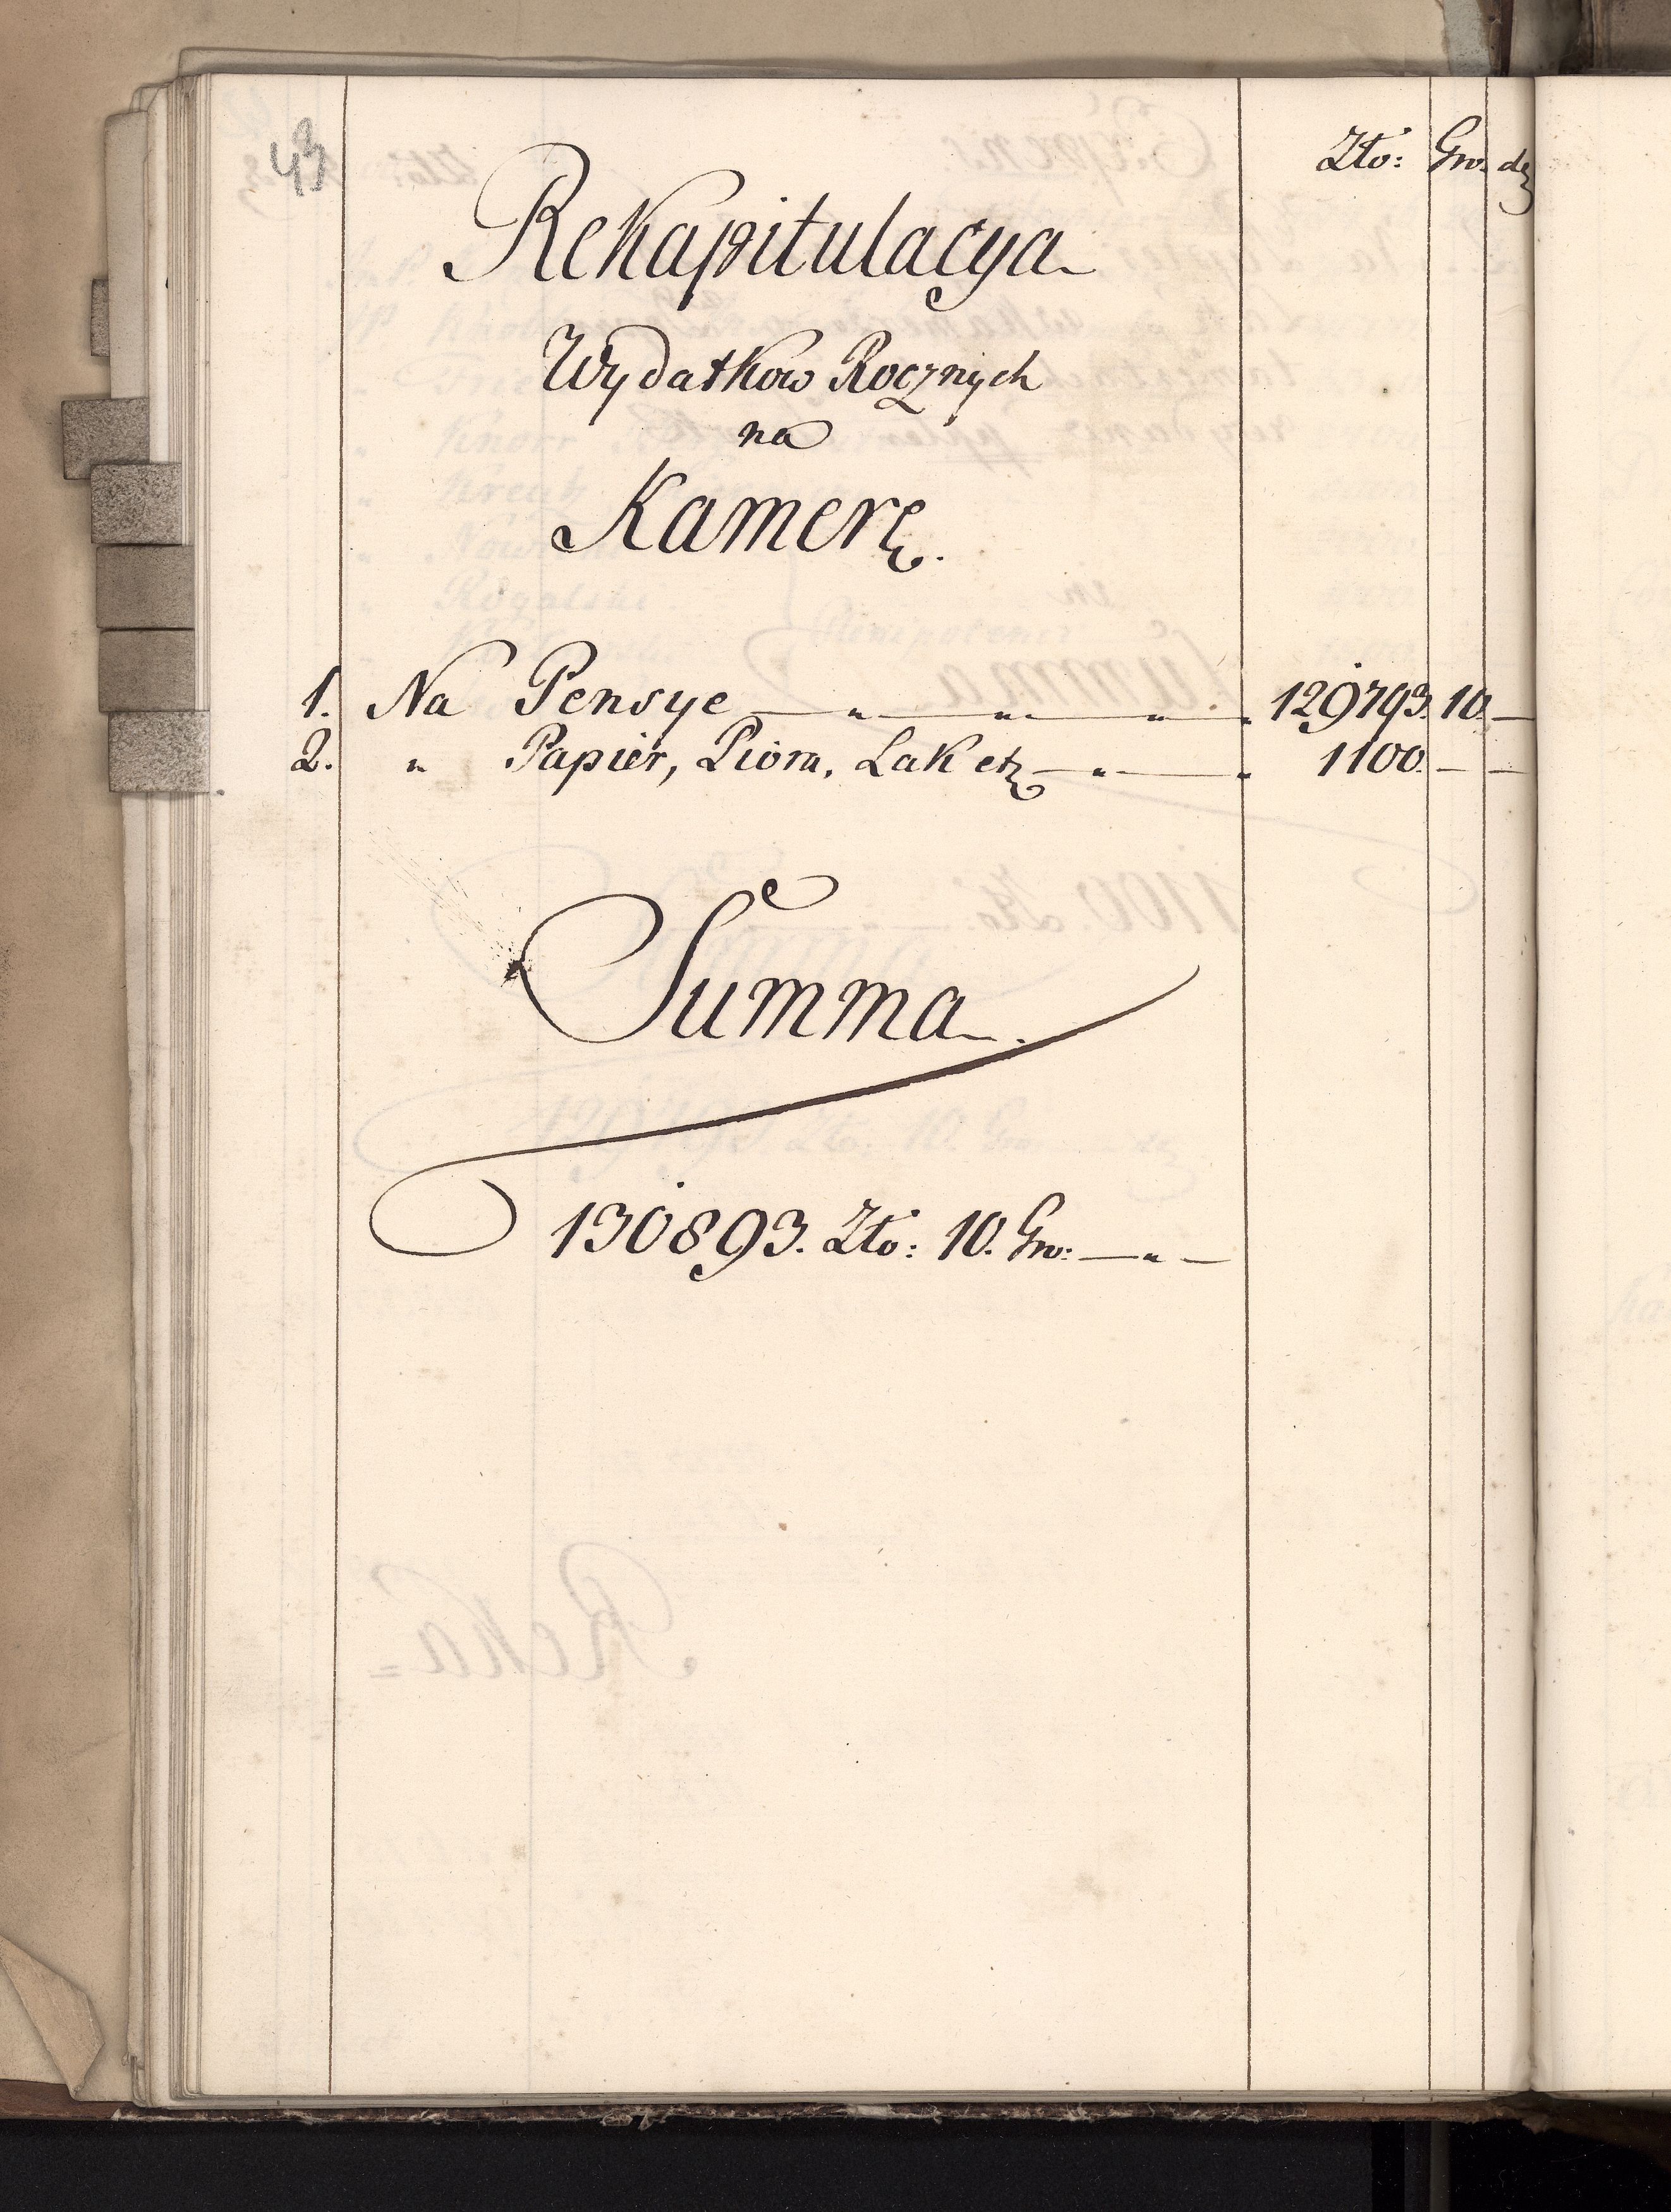 43
Zło: Gro. dz
Rekapitulacya
Wydatkow Rocznych
na
Kamerę.
1. Na Pensye — „ — „ — „ — 129793. 10. —
2. „ Papier, Piora, Lak etz — „ — 1100. — —
Summa.
130893. Zło: 10. Gro: — „ —